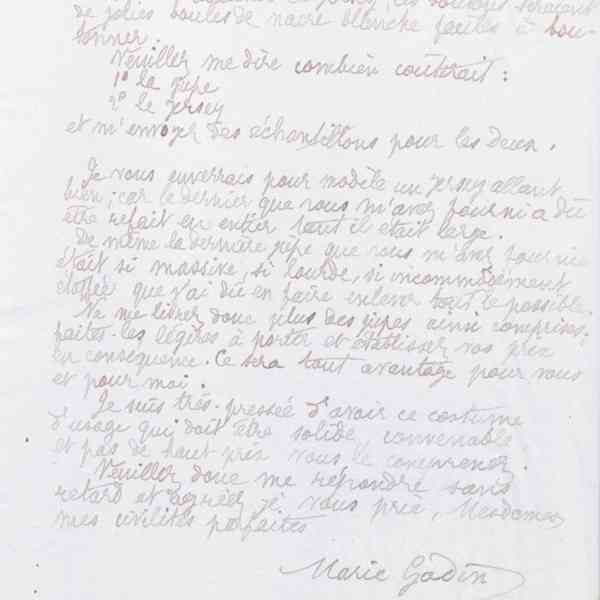 de jolies boules de nacre blanche faciles à bou-
tonner.
Veuillez me dire combien coûterait :
1° la jupe
2° le jersey
et m'envoyer des échantillons pour les Deux.
Je vous enverrais pour modèle un jersey allant
bien ; car le dernier que vous m'avez fourni a dû
être refait en entier tant il était large.
De même la dernière jupe que vous m'avez fournie
était si massive, si lourde, si incommodément
étoffée que j'ai dû en faire enlever tout le possible.
Ne me livrez donc plus des jupes ainsi comprises.
faites-les légères à porter et établissez vos prix
en conséquence. Ce sera tout avantage pour vous
et pour moi.
Je suis très-pressée d'avoir ce costume
d'usage qui doit être solide, convenable
et pas de haut prix vous le comprenez.
Veuillez donc me répondre sans
retard et agréer je vous prie, Mesdames
mes civilités parfaites
Marie Godin